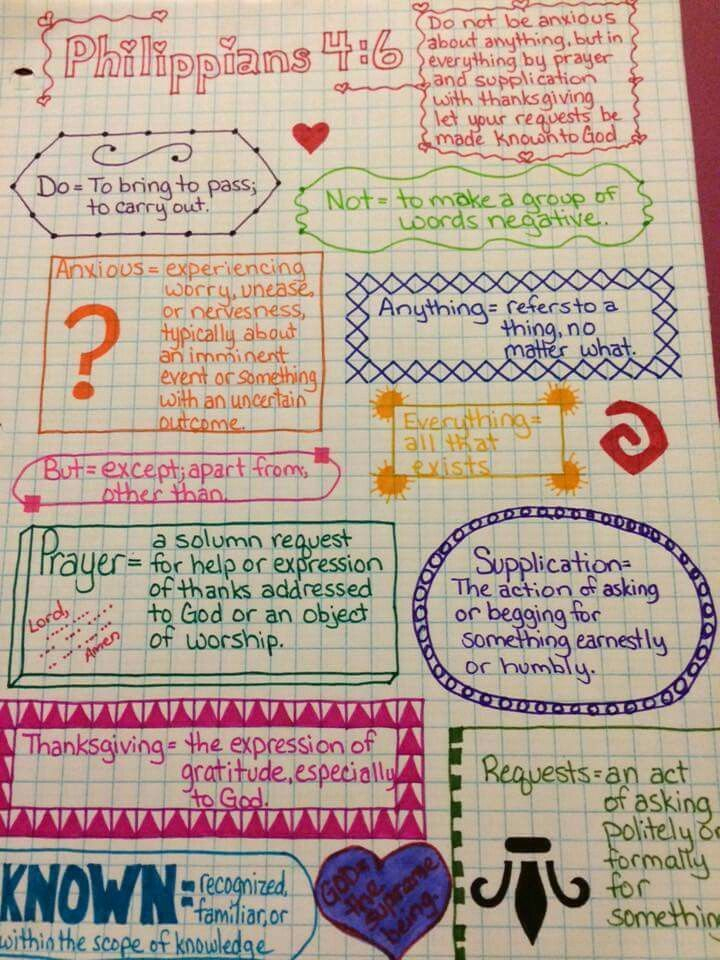 Philippians 4:6
Do not be anxious
about anything, but in
everything by prayer
and supplication
with thanksgiving
let your requests be
made known to God
Do = To bring to pass;
to carry out.
Not = to make a group of
words negative..
Anxious = experiencing
worry, unease,
or nervesness,
typically about
an imminent
event or something
with an uncertain
outcome.
?
Anything = refers to a
thing, no
matter what.
Everything =
all that
exists
But = except; apart from;
other than.
Prayer = a solumn request
for help or expression
of thanks addressed
to God or an object
of worship.
Lord,
Amen
Supplication =
The action of asking
or begging for
something earnestly
or humbly.
Thanksgiving = the expression of
gratitude, especially
to God.
Requests = an act
of asking
politely or
formally
for
something
KNOWN = recognized,
familiar, or
within the scope of knowledge
GOD =
the
supreme
being.